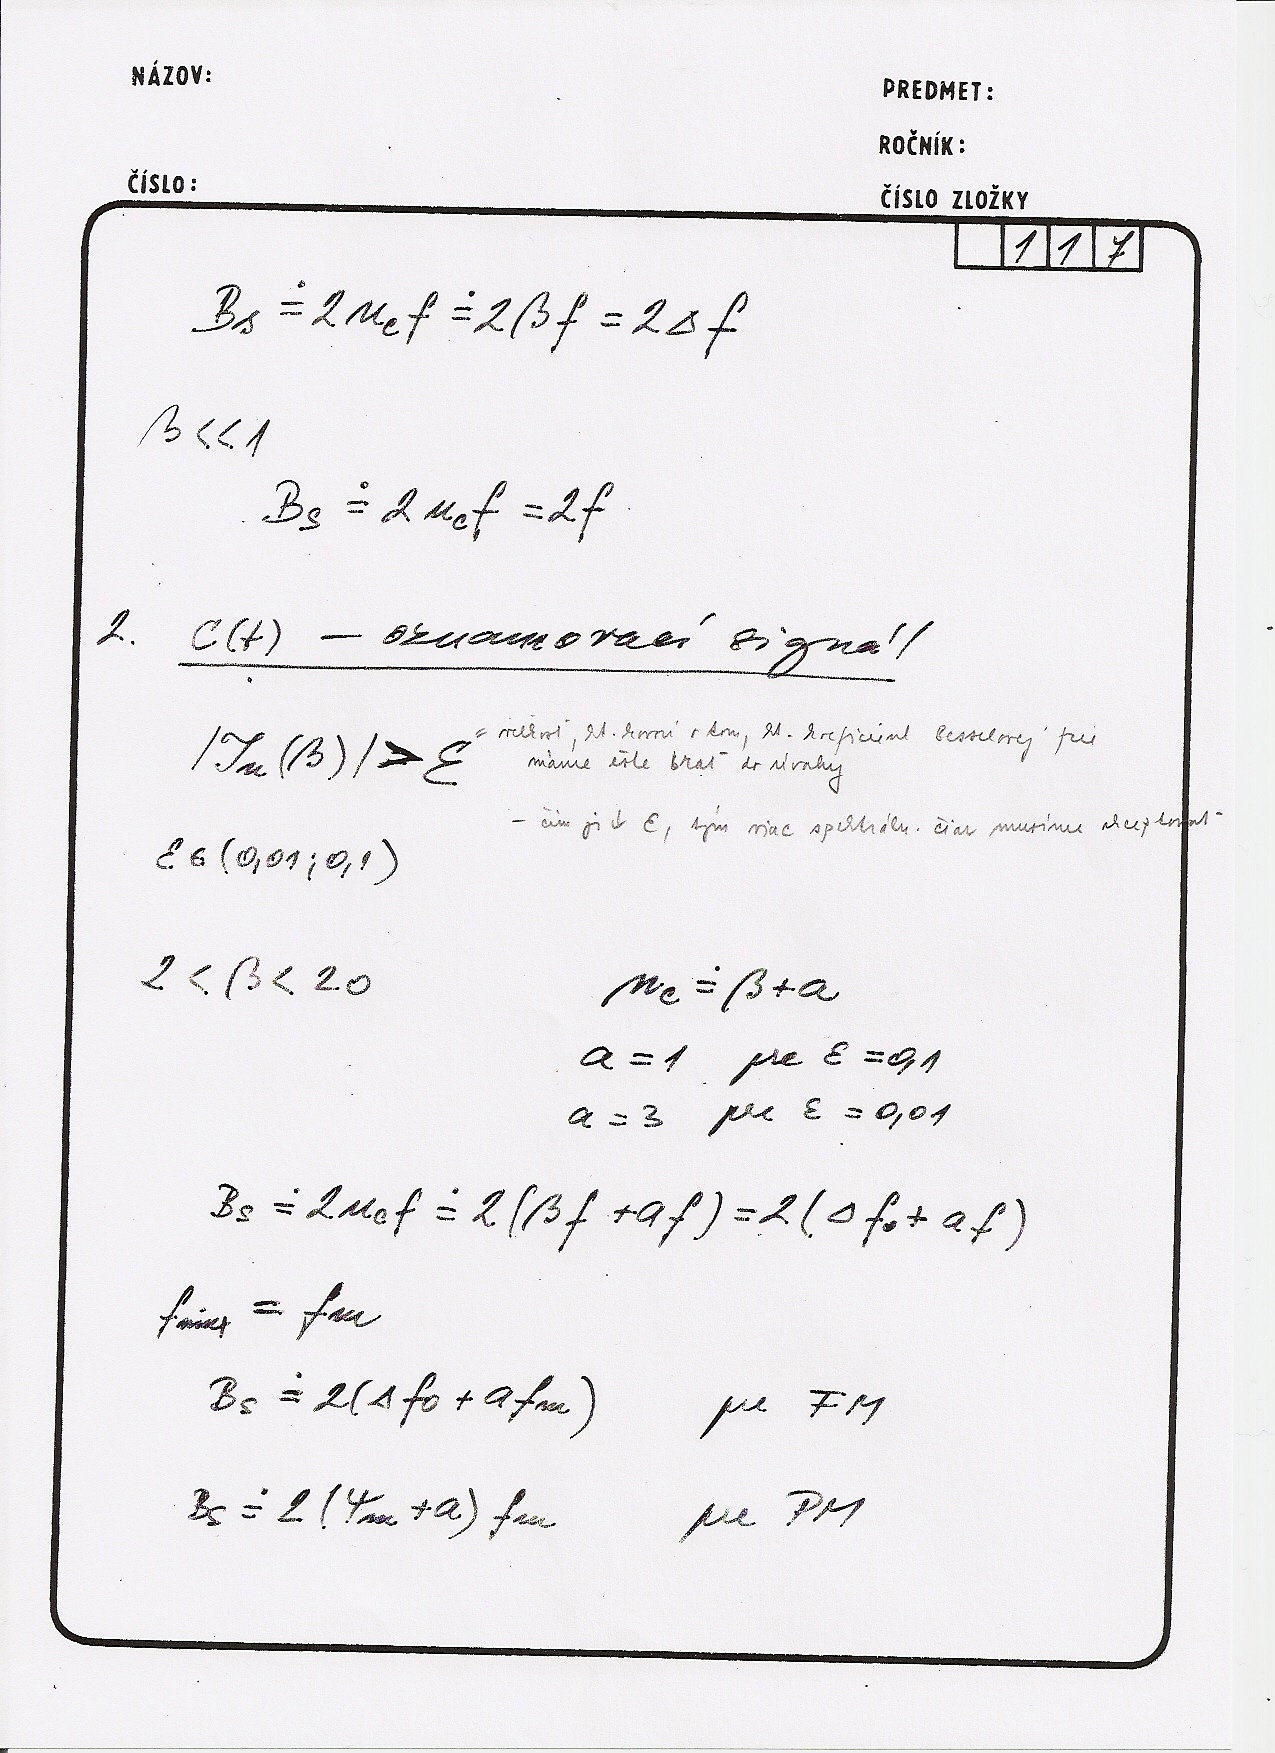 NÁZOV:
PREDMET:
ROČNÍK:
ČÍSLO:
ČÍSLO ZLOŽKY
117
Bs ≐ 2ncf ≐ 2βf = 2Δf
β<<1
Bs ≐ 2ncf = 2f
2. C(t) – oznamovací signál
|Jn(β)| > ε = veľkosť, kt. hovorí o tom, kt. koeficient Besselovej fcie
máme ešte brať do úvahy
– čím je ↓ ε, tým viac spektráln. čiar musíme akceptovať
ε ∈ (0,01; 0,1)
2 < β < 20
nc ≐ β + a
a = 1 pre ε = 0,1
a = 3 pre ε = 0,01
Bs ≐ 2ncf ≐ 2(βf + af) = 2(Δf0 + af)
= fm
Bs ≐ 2(Δf0 + afm) pre FM
Bs ≐ 2(Ψm + a) fm pre PM